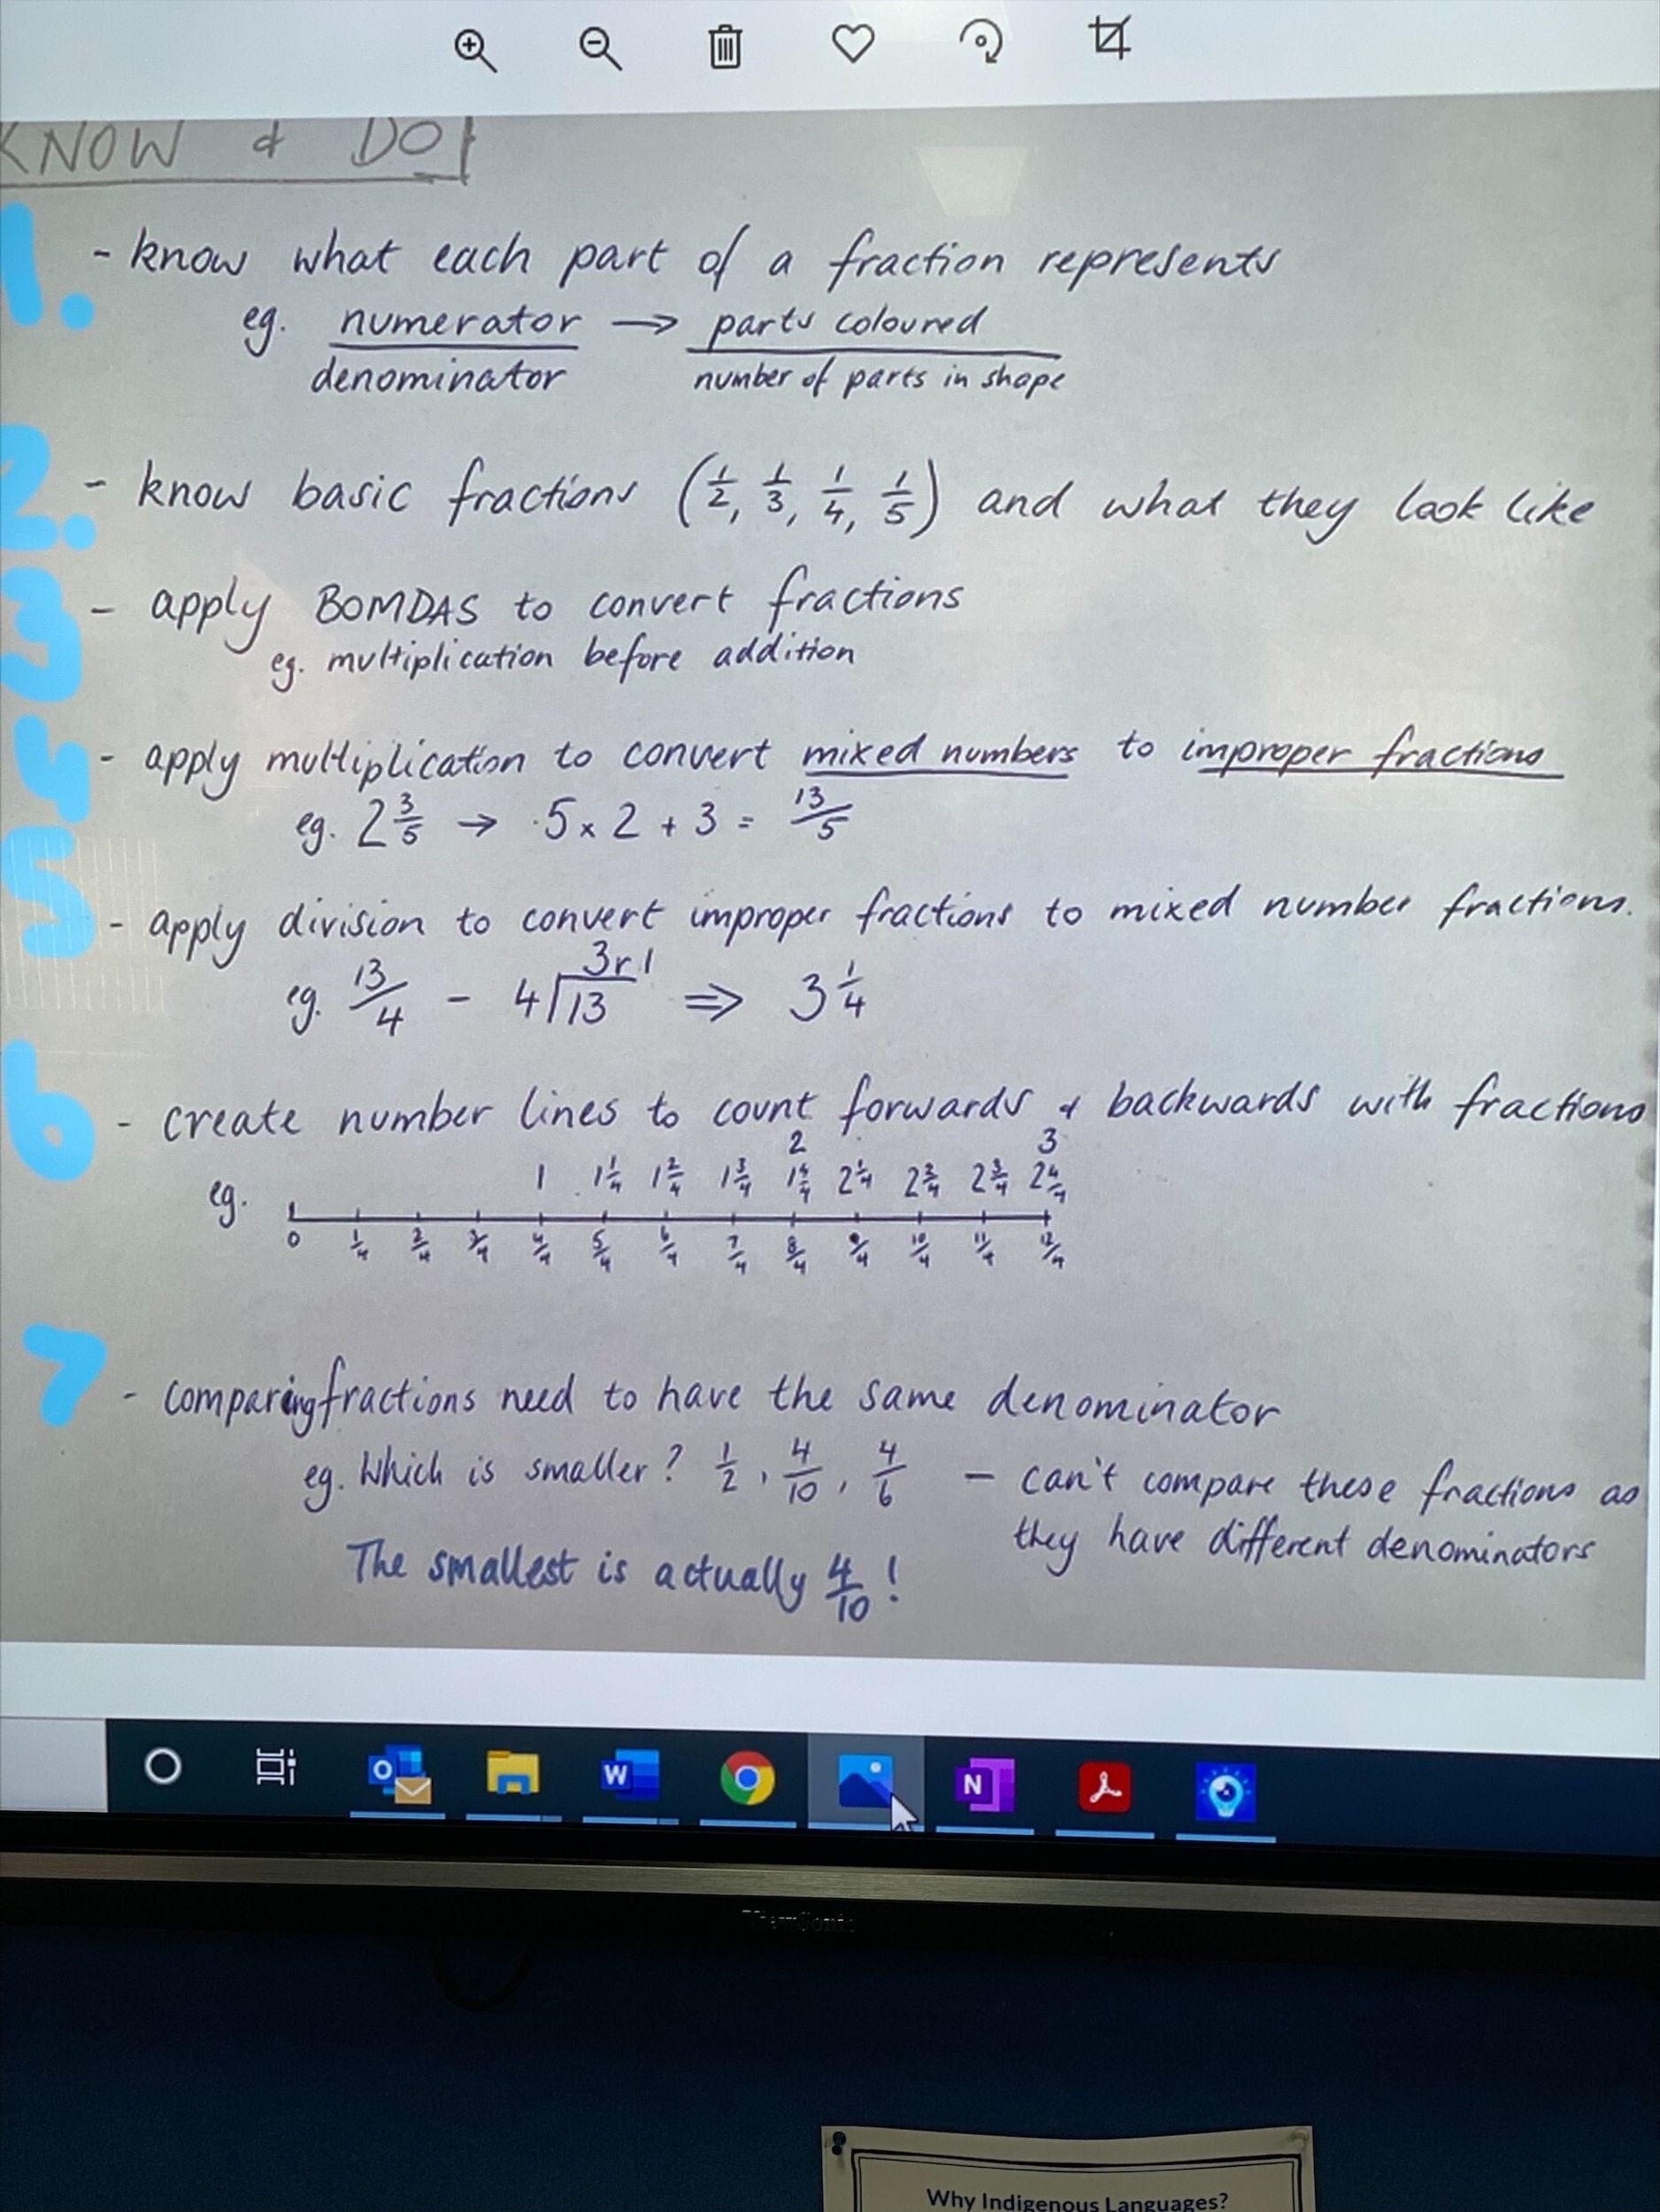 KNOW & DO
1. - know what each part of a fraction represents
eg. numerator → parts coloured
denominator number of parts in shape
2. - know basic fractions (1/2, 1/3, 1/4, 1/5) and what they look like
3 - apply BOMDAS to convert fractions
eg. multiplication before addition
4 - apply multiplication to convert mixed numbers to improper fractions
eg. 2 3/5 → 5 x 2 + 3 = 13/5
5 - apply division to convert improper fractions to mixed number fractions.
3r1
eg. 13/4 - 4 13 ⇒ 3 1/4
6 - create number lines to count forwards & backwards with fractions
2 3
1 1 1/4 1 2/4 1 3/4 1 4/4 2 1/4 2 2/4 2 3/4 2 4/4
eg.
0 1/4 2/4 3/4 4/4 5/4 6/4 7/4 8/4 9/4 10/4 11/4 12/4
7 - comparing fractions need to have the same denominator
eg. Which is smaller? 1/2, 4/10, 4/6 - can't compare these fractions as
they have different denominators
The smallest is actually 4/10!
O
W
N
ViewSonic
Why Indigenous Languages?